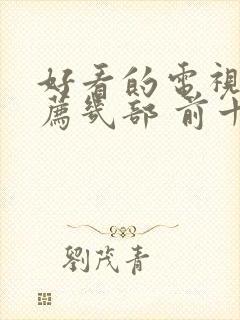 好看的電視
薦幾部 前十
劉茂青